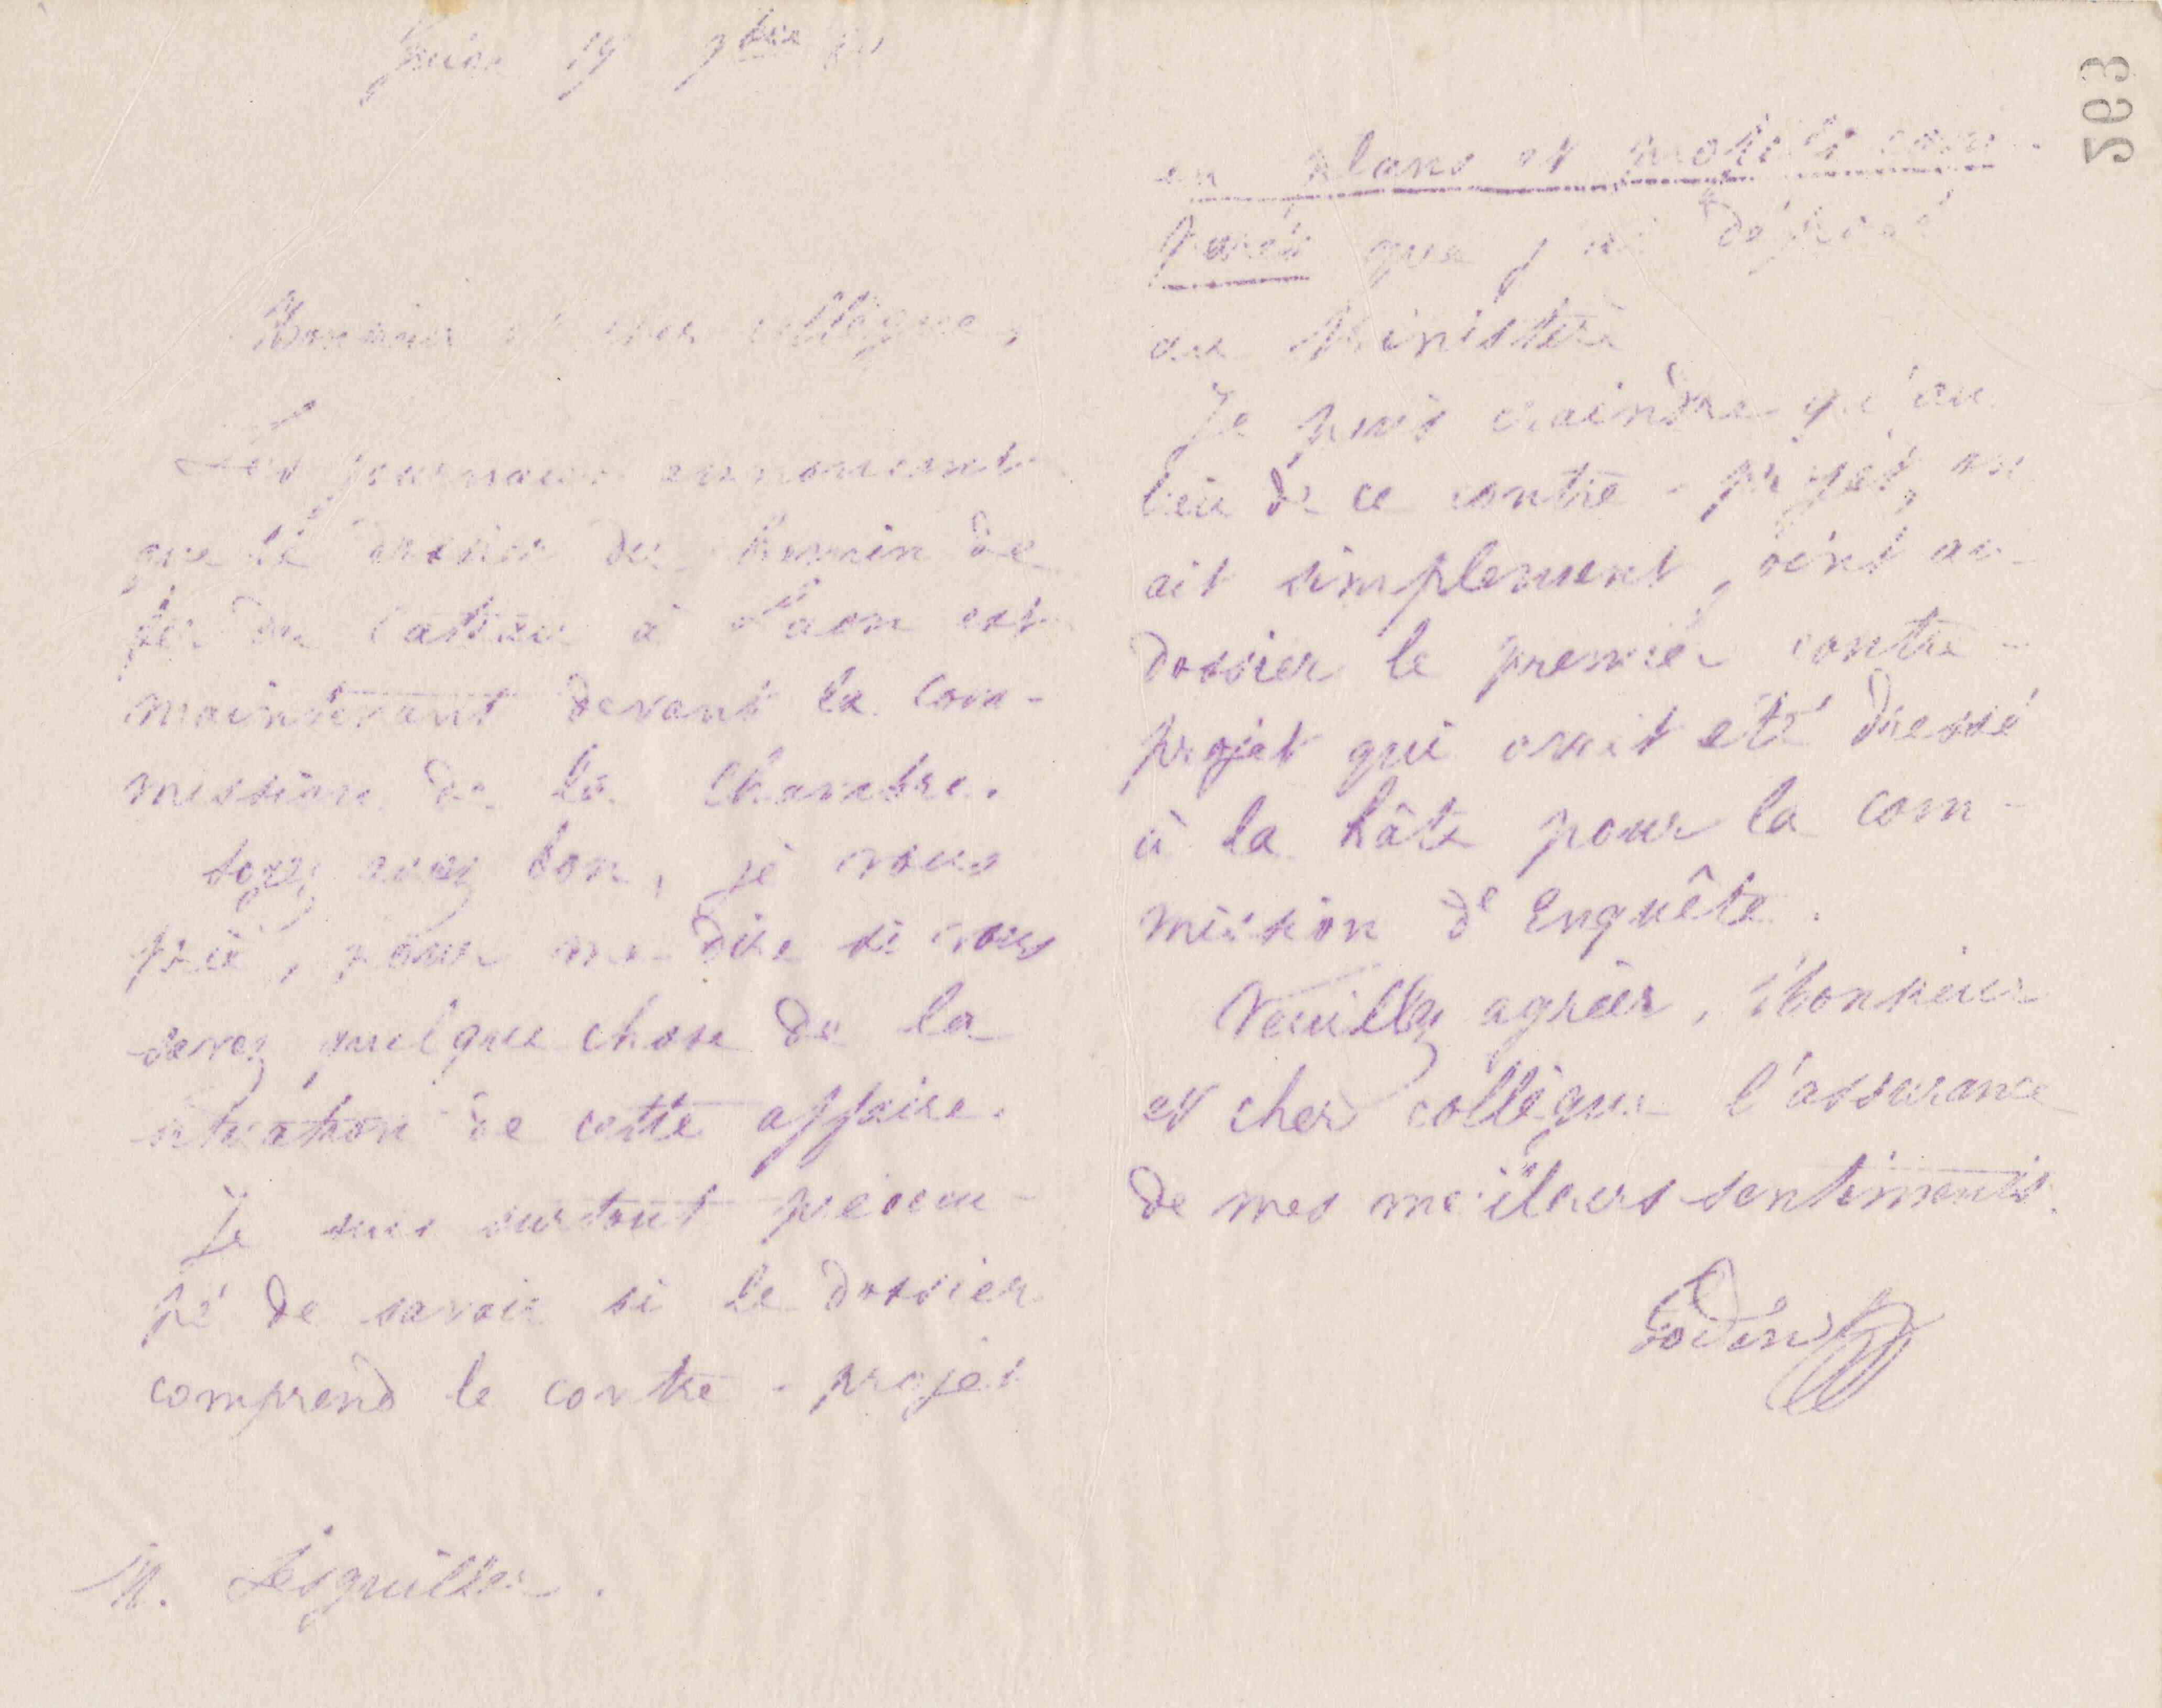 Guise 19 9bre
Monsieur et cher collègue,
Les journaux annoncent
que le dossier du chemin de
fer du Catteau à Laon est
maintenant devant la Com-
mission de la Chambre.
Soyez assez bon, je vous
prie, pour me dire si vous
savez quelque chose de la
situation de cette affaire.
Je suis surtout préoccu-
pé de savoir si le dossier
comprend le contre-projet
M. Lesguiller.
263
en plans et profils com-
parés que j'ai déposé
au Ministère
Je puis craindre qu'au
lieu de ce contre-projet, on
ait simplement joint au
dossier le premier contre-
projet qui avait été dressé
à la hâte pour la com-
mission d'Enquête.
Veuillez agréer, Monsieur
et cher collègue l'assurance
de mes meilleurs sentiments.
Godin